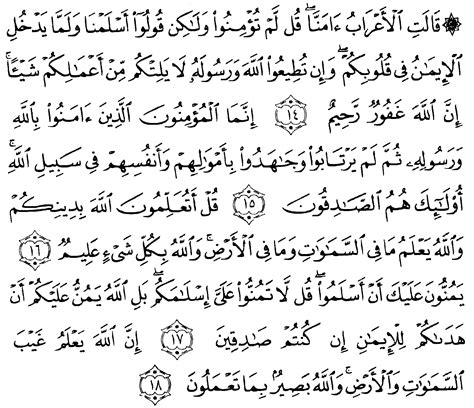 ۞ قَالَتِ ٱلْأَعْرَابُ ءَامَنَّا ۖ قُل لَّمْ تُؤْمِنُوا۟ وَلَٰكِن قُولُوٓا۟ أَسْلَمْنَا وَلَمَّا يَدْخُلِ
ٱلْإِيمَٰنُ فِى قُلُوبِكُمْ ۖ وَإِن تُطِيعُوا۟ ٱللَّهَ وَرَسُولَهُۥ لَا يَلِتْكُم مِّنْ أَعْمَٰلِكُمْ شَيْـًٔا ۚ
إِنَّ ٱللَّهَ غَفُورٌ رَّحِيمٌ ١٤ إِنَّمَا ٱلْمُؤْمِنُونَ ٱلَّذِينَ ءَامَنُوا۟ بِٱللَّهِ
وَرَسُولِهِۦ ثُمَّ لَمْ يَرْتَابُوا۟ وَجَٰهَدُوا۟ بِأَمْوَٰلِهِمْ وَأَنفُسِهِمْ فِى سَبِيلِ ٱللَّهِ ۚ
أُو۟لَٰٓئِكَ هُمُ ٱلصَّٰدِقُونَ ١٥ قُلْ أَتُعَلِّمُونَ ٱللَّهَ بِدِينِكُمْ
وَٱللَّهُ يَعْلَمُ مَا فِى ٱلسَّمَٰوَٰتِ وَمَا فِى ٱلْأَرْضِ ۚ وَٱللَّهُ بِكُلِّ شَىْءٍ عَلِيمٌ ١٦
يَمُنُّونَ عَلَيْكَ أَنْ أَسْلَمُوا۟ ۖ قُل لَّا تَمُنُّوا۟ عَلَىَّ إِسْلَٰمَكُم ۖ بَلِ ٱللَّهُ يَمُنُّ عَلَيْكُمْ أَنْ
هَدَىٰكُمْ لِلْإِيمَٰنِ إِن كُنتُمْ صَٰدِقِينَ ١٧ إِنَّ ٱللَّهَ يَعْلَمُ غَيْبَ
ٱلسَّمَٰوَٰتِ وَٱلْأَرْضِ ۚ وَٱللَّهُ بَصِيرٌۢ بِمَا تَعْمَلُونَ ١٨